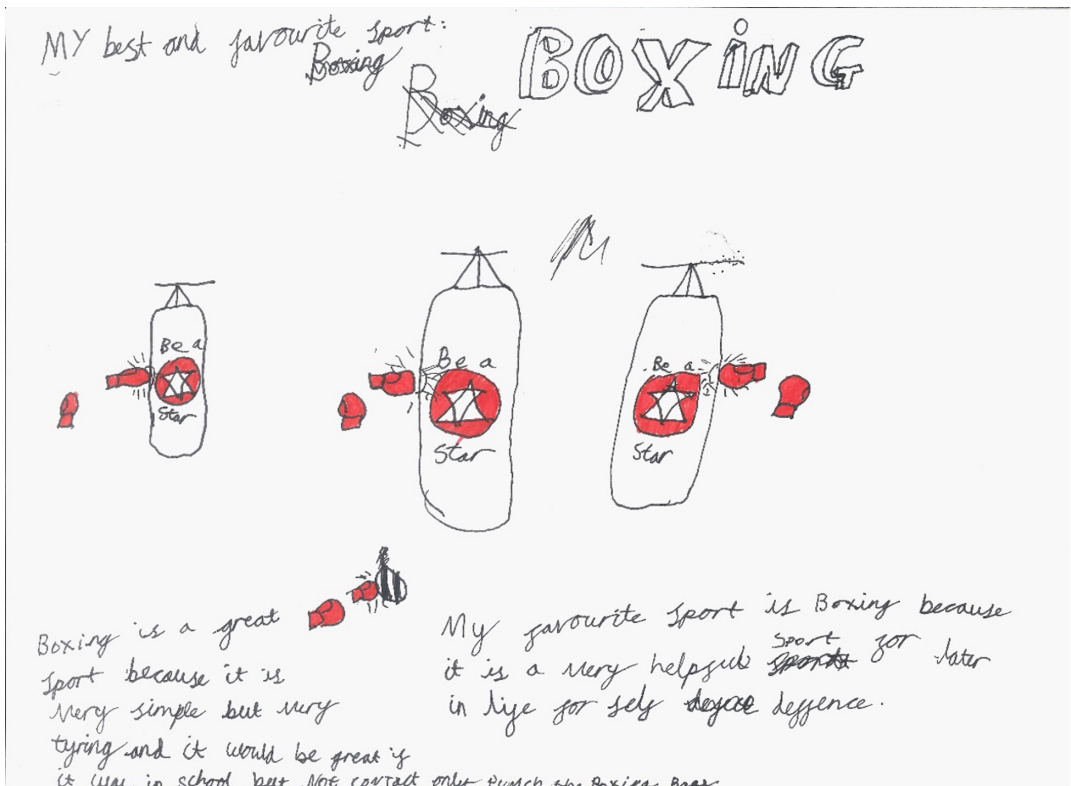 MY best and favourite sport:
Boxing
Boxing
BOXiNG
Be a
Star
Be a
Star
Be a
Star
Boxing is a great
sport because it is
very simple but very
tyring and it would be great if
it was in school but Not contact only punch the Boxing Bags
My favourite sport is Boxing because
it is a very helpful sport for later
in life for self deffence.